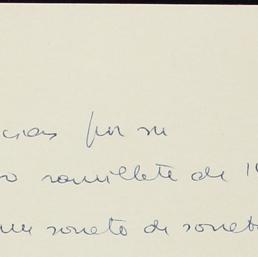 cias por su
o ramillete de 1
un soneto de soneto